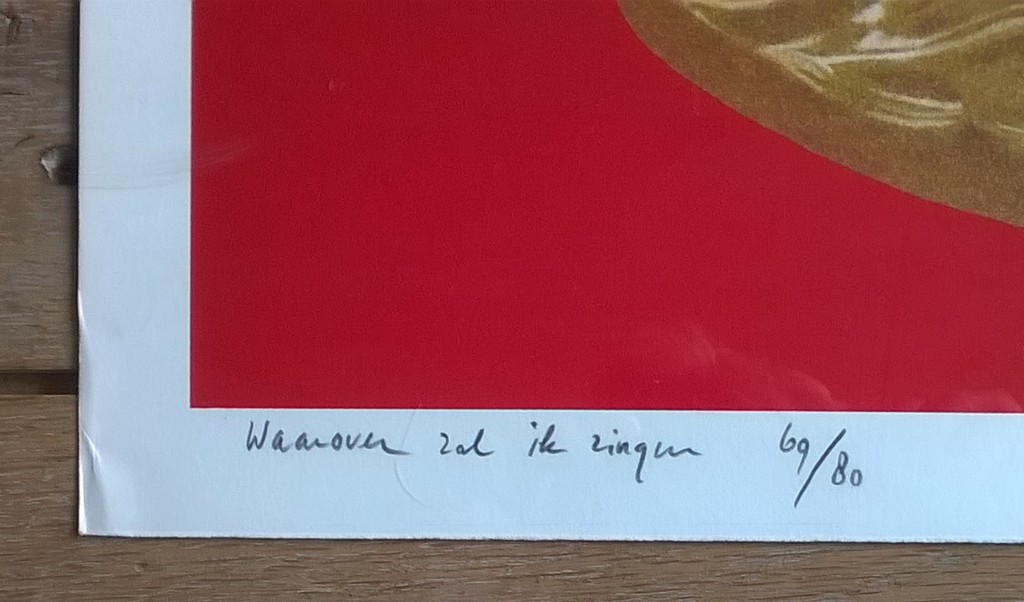 Waarover zal ik zingen 69/80